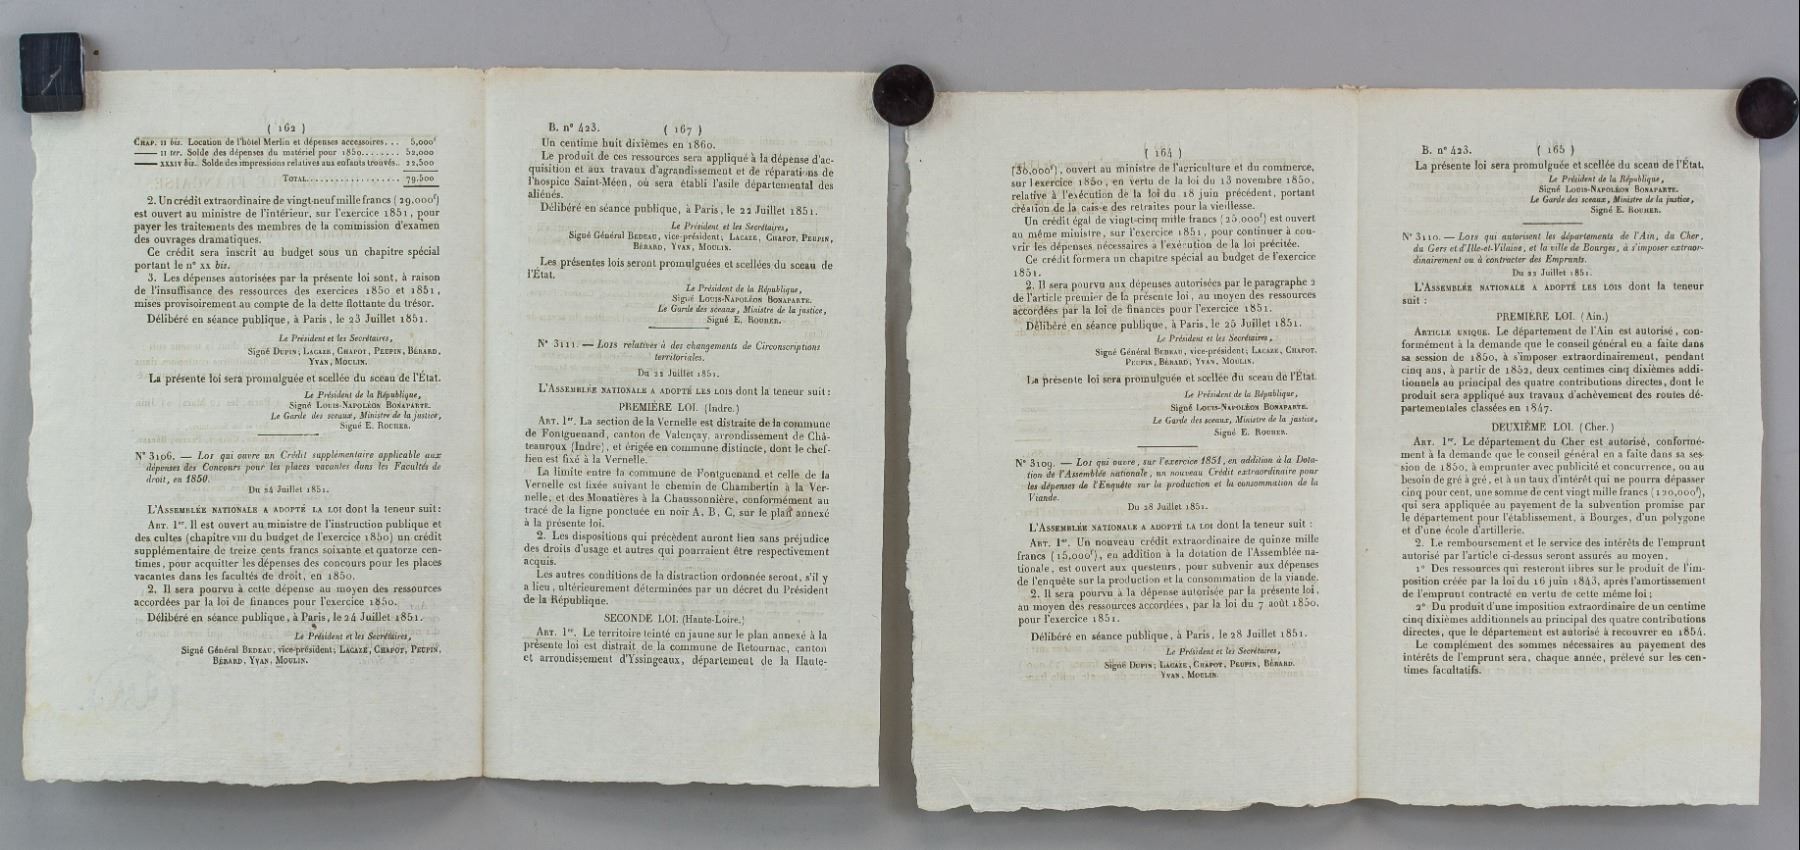 ( 162 )
CHAP. 11 bis. Location de l'hôtel Merlin et dépenses accessoires... 5,000f
—— 11 ter. Solde des dépenses du matériel pour 1850........ 52,000
—— XXXIV bis. Solde des impressions relatives aux enfants trouvés.. 22,500
TOTAL.................. 79,500
2. Un crédit extraordinaire de vingt-neuf mille francs (29,000f)
est ouvert au ministre de l'intérieur, sur l'exercice 1851, pour
payer les traitements des membres de la commission d'examen
des ouvrages dramatiques.
Ce crédit sera inscrit au budget sous un chapitre spécial
portant le n° XX bis.
3. Les dépenses autorisées par la présente loi sont, à raison
de l'insuffisance des ressources des exercices 1850 et 1851,
mises provisoirement au compte de la dette flottante du trésor.
Délibéré en séance publique, à Paris, le 23 Juillet 1851.
Le Président et les Secrétaires,
Signé DUPIN; LACAZE, CHAPOT, PEUPIN, BÉRARD,
YVAN, MOULIN.
La présente loi sera promulguée et scellée du sceau de l'État.
Le Président de la République,
Signé LOUIS-NAPOLÉON BONAPARTE.
Le Garde des sceaux, Ministre de la justice,
Signé E. ROUHER.
N° 3106. — LOI qui ouvre un Crédit supplémentaire applicable aux
dépenses des Concours pour les places vacantes dans les Facultés de
droit, en 1850.
Du 24 Juillet 1851.
L'ASSEMBLÉE NATIONALE A ADOPTÉ LA LOI dont la teneur suit:
ART. 1er. Il est ouvert au ministre de l'instruction publique et
des cultes (chapitre VIII du budget de l'exercice 1850) un crédit
supplémentaire de treize cents francs soixante et quatorze cen-
times, pour acquitter les dépenses des concours pour les places
vacantes dans les facultés de droit, en 1850.
2. Il sera pourvu à cette dépense au moyen des ressources
accordées par la loi de finances pour l'exercice 1850.
Délibéré en séance publique, à Paris, le 24 Juillet 1851.
Le Président et les Secrétaires,
Signé Général BEDEAU, vice-président; LACAZE, CHAPOT, PEUPIN,
BÉRARD, YVAN, MOULIN.
B. n° 423. ( 167 )
Un centime huit dixièmes en 1860.
Le produit de ces ressources sera appliqué à la dépense d'ac-
quisition et aux travaux d'agrandissement et de réparations de
l'hospice Saint-Méen, où sera établi l'asile départemental des
aliénés.
Délibéré en séance publique, à Paris, le 22 Juillet 1851.
Le Président et les Secrétaires,
Signé Général BEDEAU, vice-président; LACAZE, CHAPOT, PEUPIN,
BÉRARD, YVAN, MOULIN.
Les présentes lois seront promulguées et scellées du sceau de
l'État.
Le Président de la République,
Signé LOUIS-NAPOLÉON BONAPARTE.
Le Garde des sceaux, Ministre de la justice,
Signé E. ROUHER.
N° 3111. — LOIS relatives à des changements de Circonscriptions
territoriales.
Du 22 Juillet 1851.
L'ASSEMBLÉE NATIONALE A ADOPTÉ LES LOIS dont la teneur suit:
PREMIÈRE LOI. (Indre.)
ART. 1er. La section de la Vernelle est distraite de la commune
de Fontguenand, canton de Valençay, arrondissement de Châ-
teauroux (Indre), et érigée en commune distincte, dont le chef-
lieu est fixé à la Vernelle.
La limite entre la commune de Fontguenand et celle de la
Vernelle est fixée suivant le chemin de Chambertin à la Ver-
nelle, et des Monatières à la Chaussonnière, conformément au
tracé de la ligne ponctuée en noir A, B, C, sur le plan annexé
à la présente loi.
2. Les dispositions qui précèdent auront lieu sans préjudice
des droits d'usage et autres qui pourraient être respectivement
acquis.
Les autres conditions de la distraction ordonnée seront, s'il y
a lieu, ultérieurement déterminées par un décret du Président
de la République.
SECONDE LOI. (Haute-Loire.)
ART. 1er. Le territoire teinté en jaune sur le plan annexé à la
présente loi est distrait de la commune de Retournac, canton
et arrondissement d'Yssingeaux, département de la Haute-
( 164 )
(36,000f), ouvert au ministre de l'agriculture et du commerce,
sur l'exercice 1850, en vertu de la loi du 13 novembre 1850,
relative à l'exécution de la loi du 18 juin précédent, portant
création de la caisse des retraites pour la vieillesse.
Un crédit égal de vingt-cinq mille francs (25,000f) est ouvert
au même ministre, sur l'exercice 1851, pour continuer à cou-
vrir les dépenses nécessaires à l'exécution de la loi précitée.
Ce crédit formera un chapitre spécial au budget de l'exercice
1851.
2. Il sera pourvu aux dépenses autorisées par le paragraphe 2
de l'article premier de la présente loi, au moyen des ressources
accordées par la loi de finances pour l'exercice 1851.
Délibéré en séance publique, à Paris, le 25 Juillet 1851.
Le Président et les Secrétaires,
Signé Général BEDEAU, vice-président; LACAZE, CHAPOT,
PEUPIN, BÉRARD, YVAN, MOULIN.
La présente loi sera promulguée et scellée du sceau de l'État.
Le Président de la République,
Signé LOUIS-NAPOLÉON BONAPARTE.
Le Garde des sceaux, Ministre de la justice,
Signé E. ROUHER.
N° 3109. — LOI qui ouvre, sur l'exercice 1851, en addition à la Dota-
tion de l'Assemblée nationale, un nouveau Crédit extraordinaire pour
les dépenses de l'Enquête sur la production et la consommation de la
Viande.
Du 28 Juillet 1851.
L'ASSEMBLÉE NATIONALE A ADOPTÉ LA LOI dont la teneur suit :
ART. 1er. Un nouveau crédit extraordinaire de quinze mille
francs (15,000f), en addition à la dotation de l'Assemblée na-
tionale, est ouvert aux questeurs, pour subvenir aux dépenses
de l'enquête sur la production et la consommation de la viande.
2. Il sera pourvu à la dépense autorisée par la présente loi,
au moyen des ressources accordées, par la loi du 7 août 1850,
pour l'exercice 1851.
Délibéré en séance publique, à Paris, le 28 Juillet 1851.
Le Président et les Secrétaires,
Signé DUPIN; LACAZE, CHAPOT, PEUPIN, BÉRARD,
YVAN, MOULIN.
B. n° 423. ( 165 )
La présente loi sera promulguée et scellée du sceau de l'État.
Le Président de la République,
Signé LOUIS-NAPOLÉON BONAPARTE.
Le Garde des sceaux, Ministre de la justice,
Signé E. ROUHER.
N° 3110. — LOIS qui autorisent les départements de l'Ain, du Cher,
du Gers et d'Ille-et-Vilaine, et la ville de Bourges, à s'imposer extraor-
dinairement ou à contracter des Emprunts.
Du 22 Juillet 1851.
L'ASSEMBLÉE NATIONALE A ADOPTÉ LES LOIS dont la teneur
suit :
PREMIÈRE LOI. (Ain.)
ARTICLE UNIQUE. Le département de l'Ain est autorisé, con-
formément à la demande que le conseil général en a faite dans
sa session de 1850, à s'imposer extraordinairement, pendant
cinq ans, à partir de 1852, deux centimes cinq dixièmes addi-
tionnels au principal des quatre contributions directes, dont le
produit sera appliqué aux travaux d'achèvement des routes dé-
partementales classées en 1847.
DEUXIÈME LOI. (Cher.)
ART. 1er. Le département du Cher est autorisé, conformé-
ment à la demande que le conseil général en a faite dans sa ses-
sion de 1850, à emprunter avec publicité et concurrence, ou au
besoin de gré à gré, et à un taux d'intérêt qui ne pourra dépasser
cinq pour cent, une somme de cent vingt mille francs (120,000f),
qui sera appliquée au payement de la subvention promise par
le département pour l'établissement, à Bourges, d'un polygone
et d'une école d'artillerie.
2. Le remboursement et le service des intérêts de l'emprunt
autorisé par l'article ci-dessus seront assurés au moyen,
1° Des ressources qui resteront libres sur le produit de l'im-
position créée par la loi du 16 juin 1843, après l'amortissement
de l'emprunt contracté en vertu de cette même loi;
2° Du produit d'une imposition extraordinaire de un centime
cinq dixièmes additionnels au principal des quatre contributions
directes, que le département est autorisé à recouvrer en 1854.
Le complément des sommes nécessaires au payement des
intérêts de l'emprunt sera, chaque année, prélevé sur les cen-
times facultatifs.